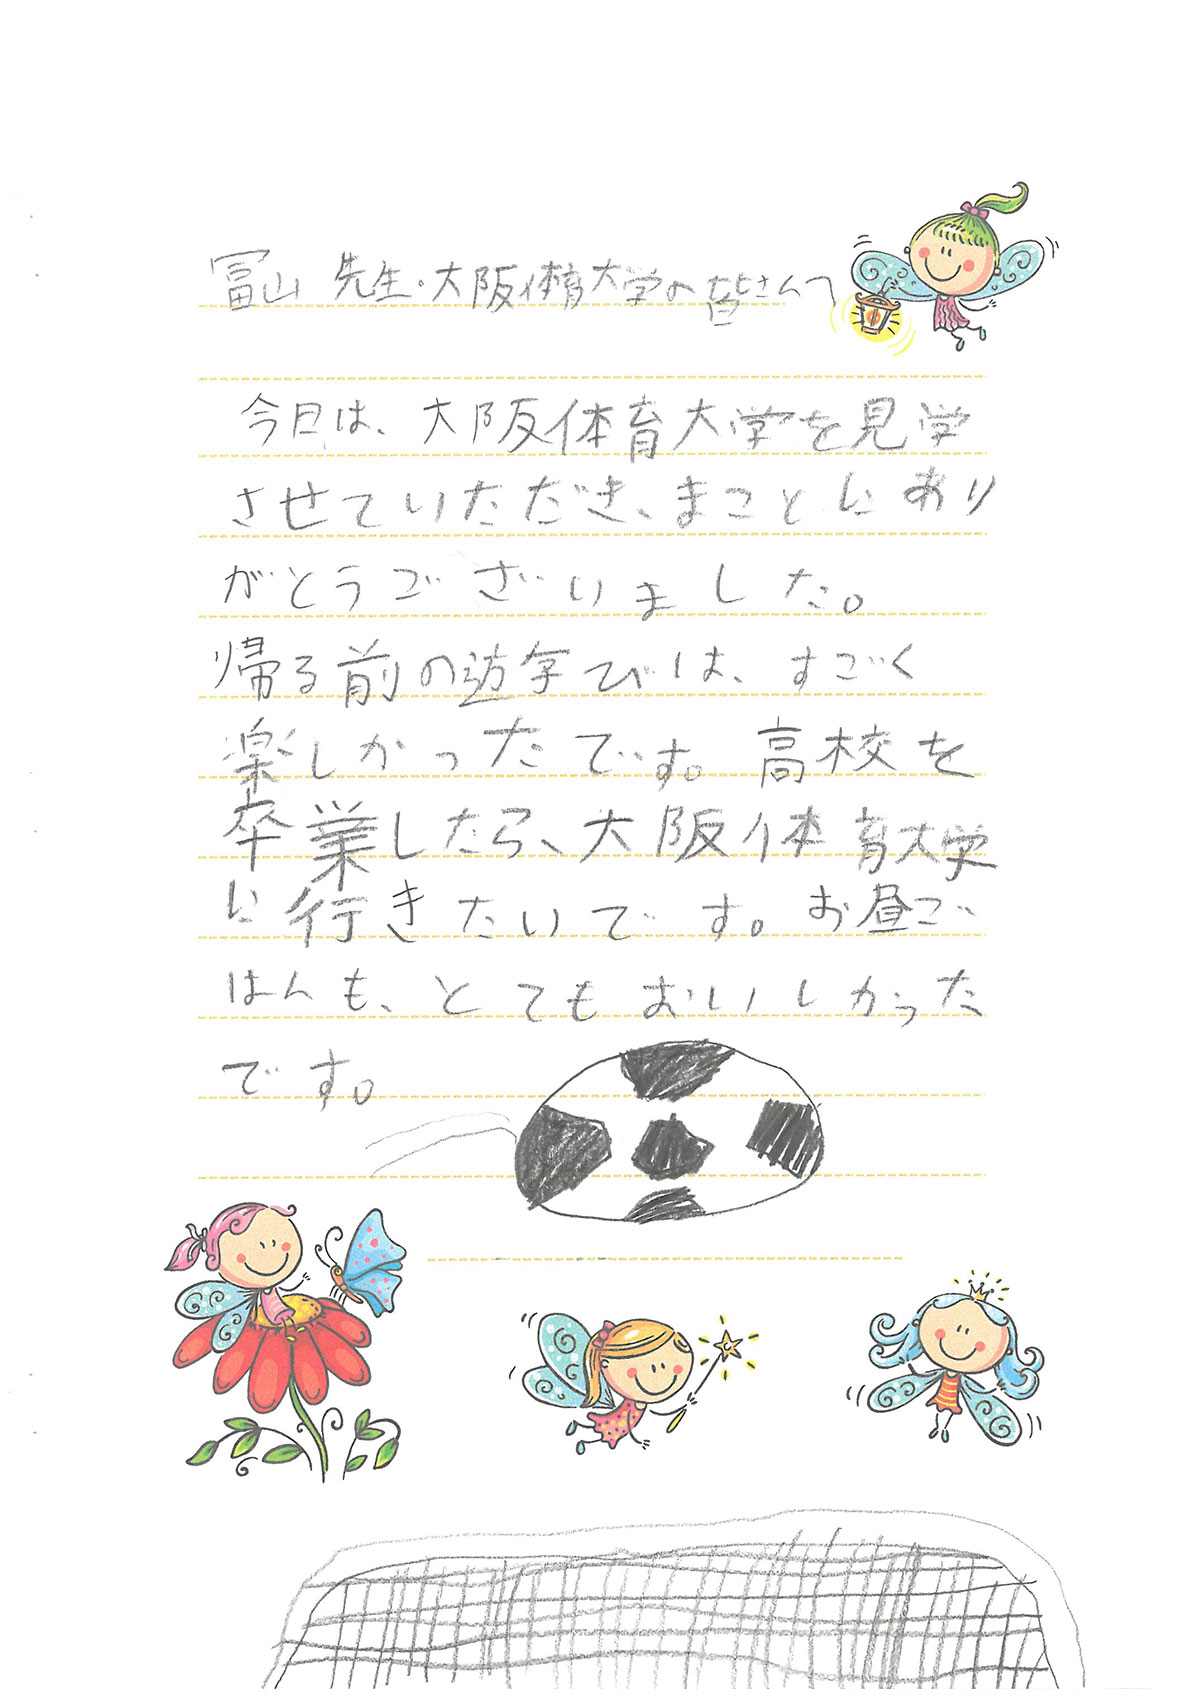 冨山 先生・大阪体育大学の皆さんへ
今日は、大阪体育大学を見学
させていただき、まことにあり
がとうございました。
帰る前の遊字びは、すごく
楽しかったです。高校を
卒業したら、大阪体育大学
に行きたいです。お昼ご
はんも、とてもおいしかった
です。